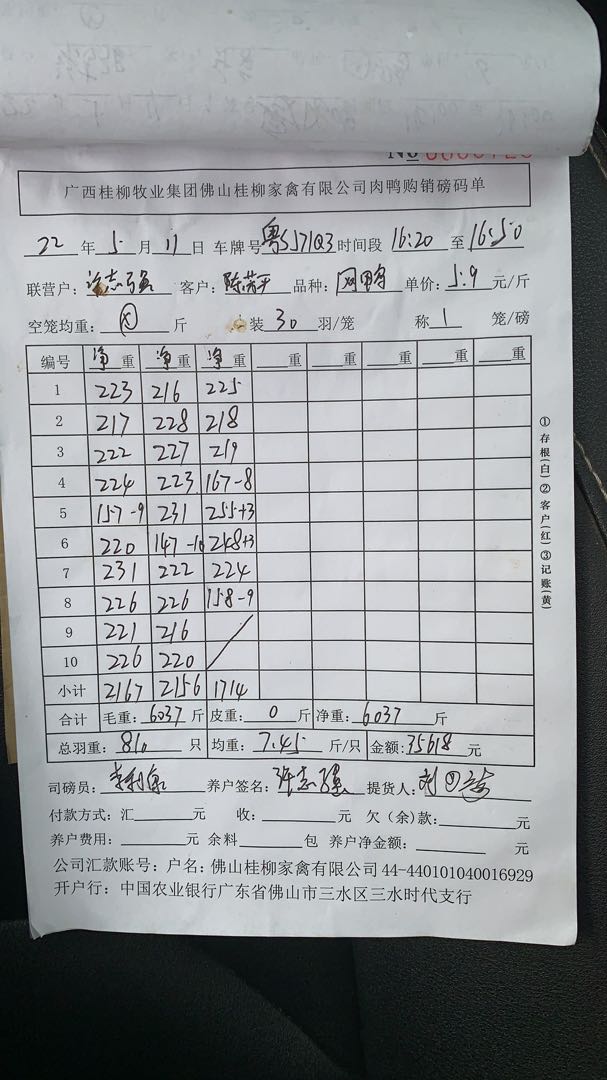 No 0000720
广西桂柳牧业集团佛山桂柳家禽有限公司肉鸭购销磅码单
22 年 5 月 11 日 车牌号 粤S571Q3 时间段 16:20 至 16:50
联营户: 许志强 客户: 陈芳平 品种: 网甲鸭 单价: 5.9 元/斤
空笼均重: 斤 装 30 羽/笼 称 1 笼/磅
编号 净重 净重 净重 重 重 重 重 重
1 223 216 225
2 217 228 218
3 222 227 219
4 224 223 167-8
5 157-9 231 255+3
6 220 147-10 248+3
7 231 222 224
8 226 226 158-9
9 221 216
10 226 220
小计 2167 2156 1714
合计 毛重: 6037 斤 皮重: 0 斤 净重: 6037 斤
总羽重: 810 只 均重: 7.45 斤/只 金额: 35618 元
司磅员: 养户签名: 许志强 提货人:
付款方式: 汇 元 收: 元 欠(余)款: 元
养户费用: 元 余料 包 养户净金额: 元
公司汇款账号: 户名: 佛山桂柳家禽有限公司 44-440101040016929
开户行: 中国农业银行广东省佛山市三水区三水时代支行
①存根(白)②客户(红)③记账(黄)